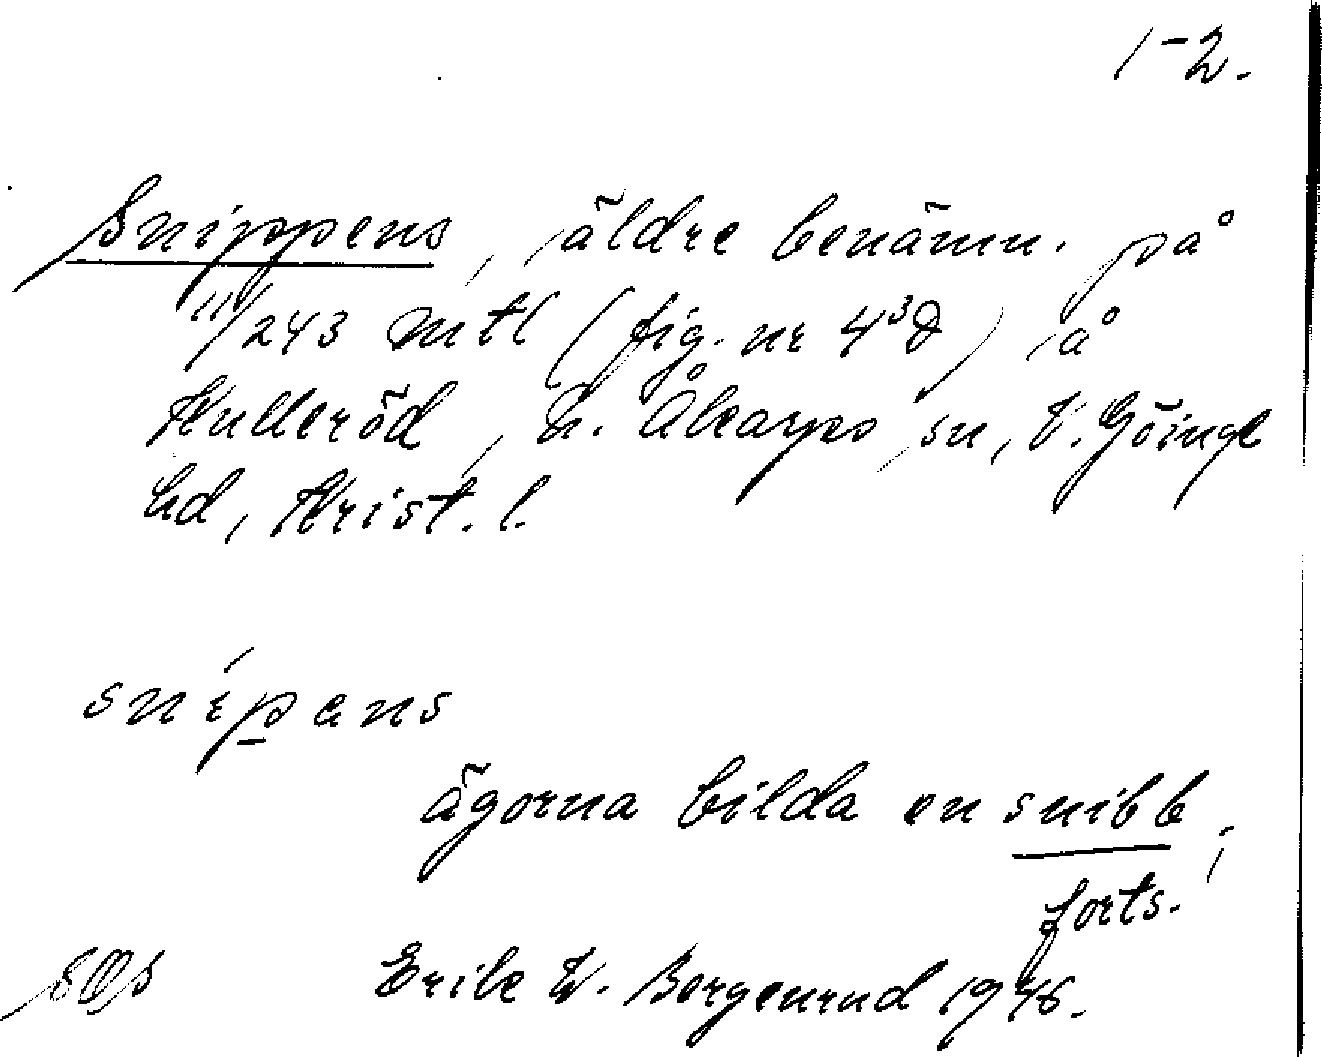 1-2.
Snippens, äldre benämn. på
11/243 mtl (fig. nr 4³d) å
Hulleröd, N. Åkarps sn, V. Göinge
hd, Krist. l.
snipans
ägorna bilda en snibb;
forts.
Erik W. Bergenrud 1946.